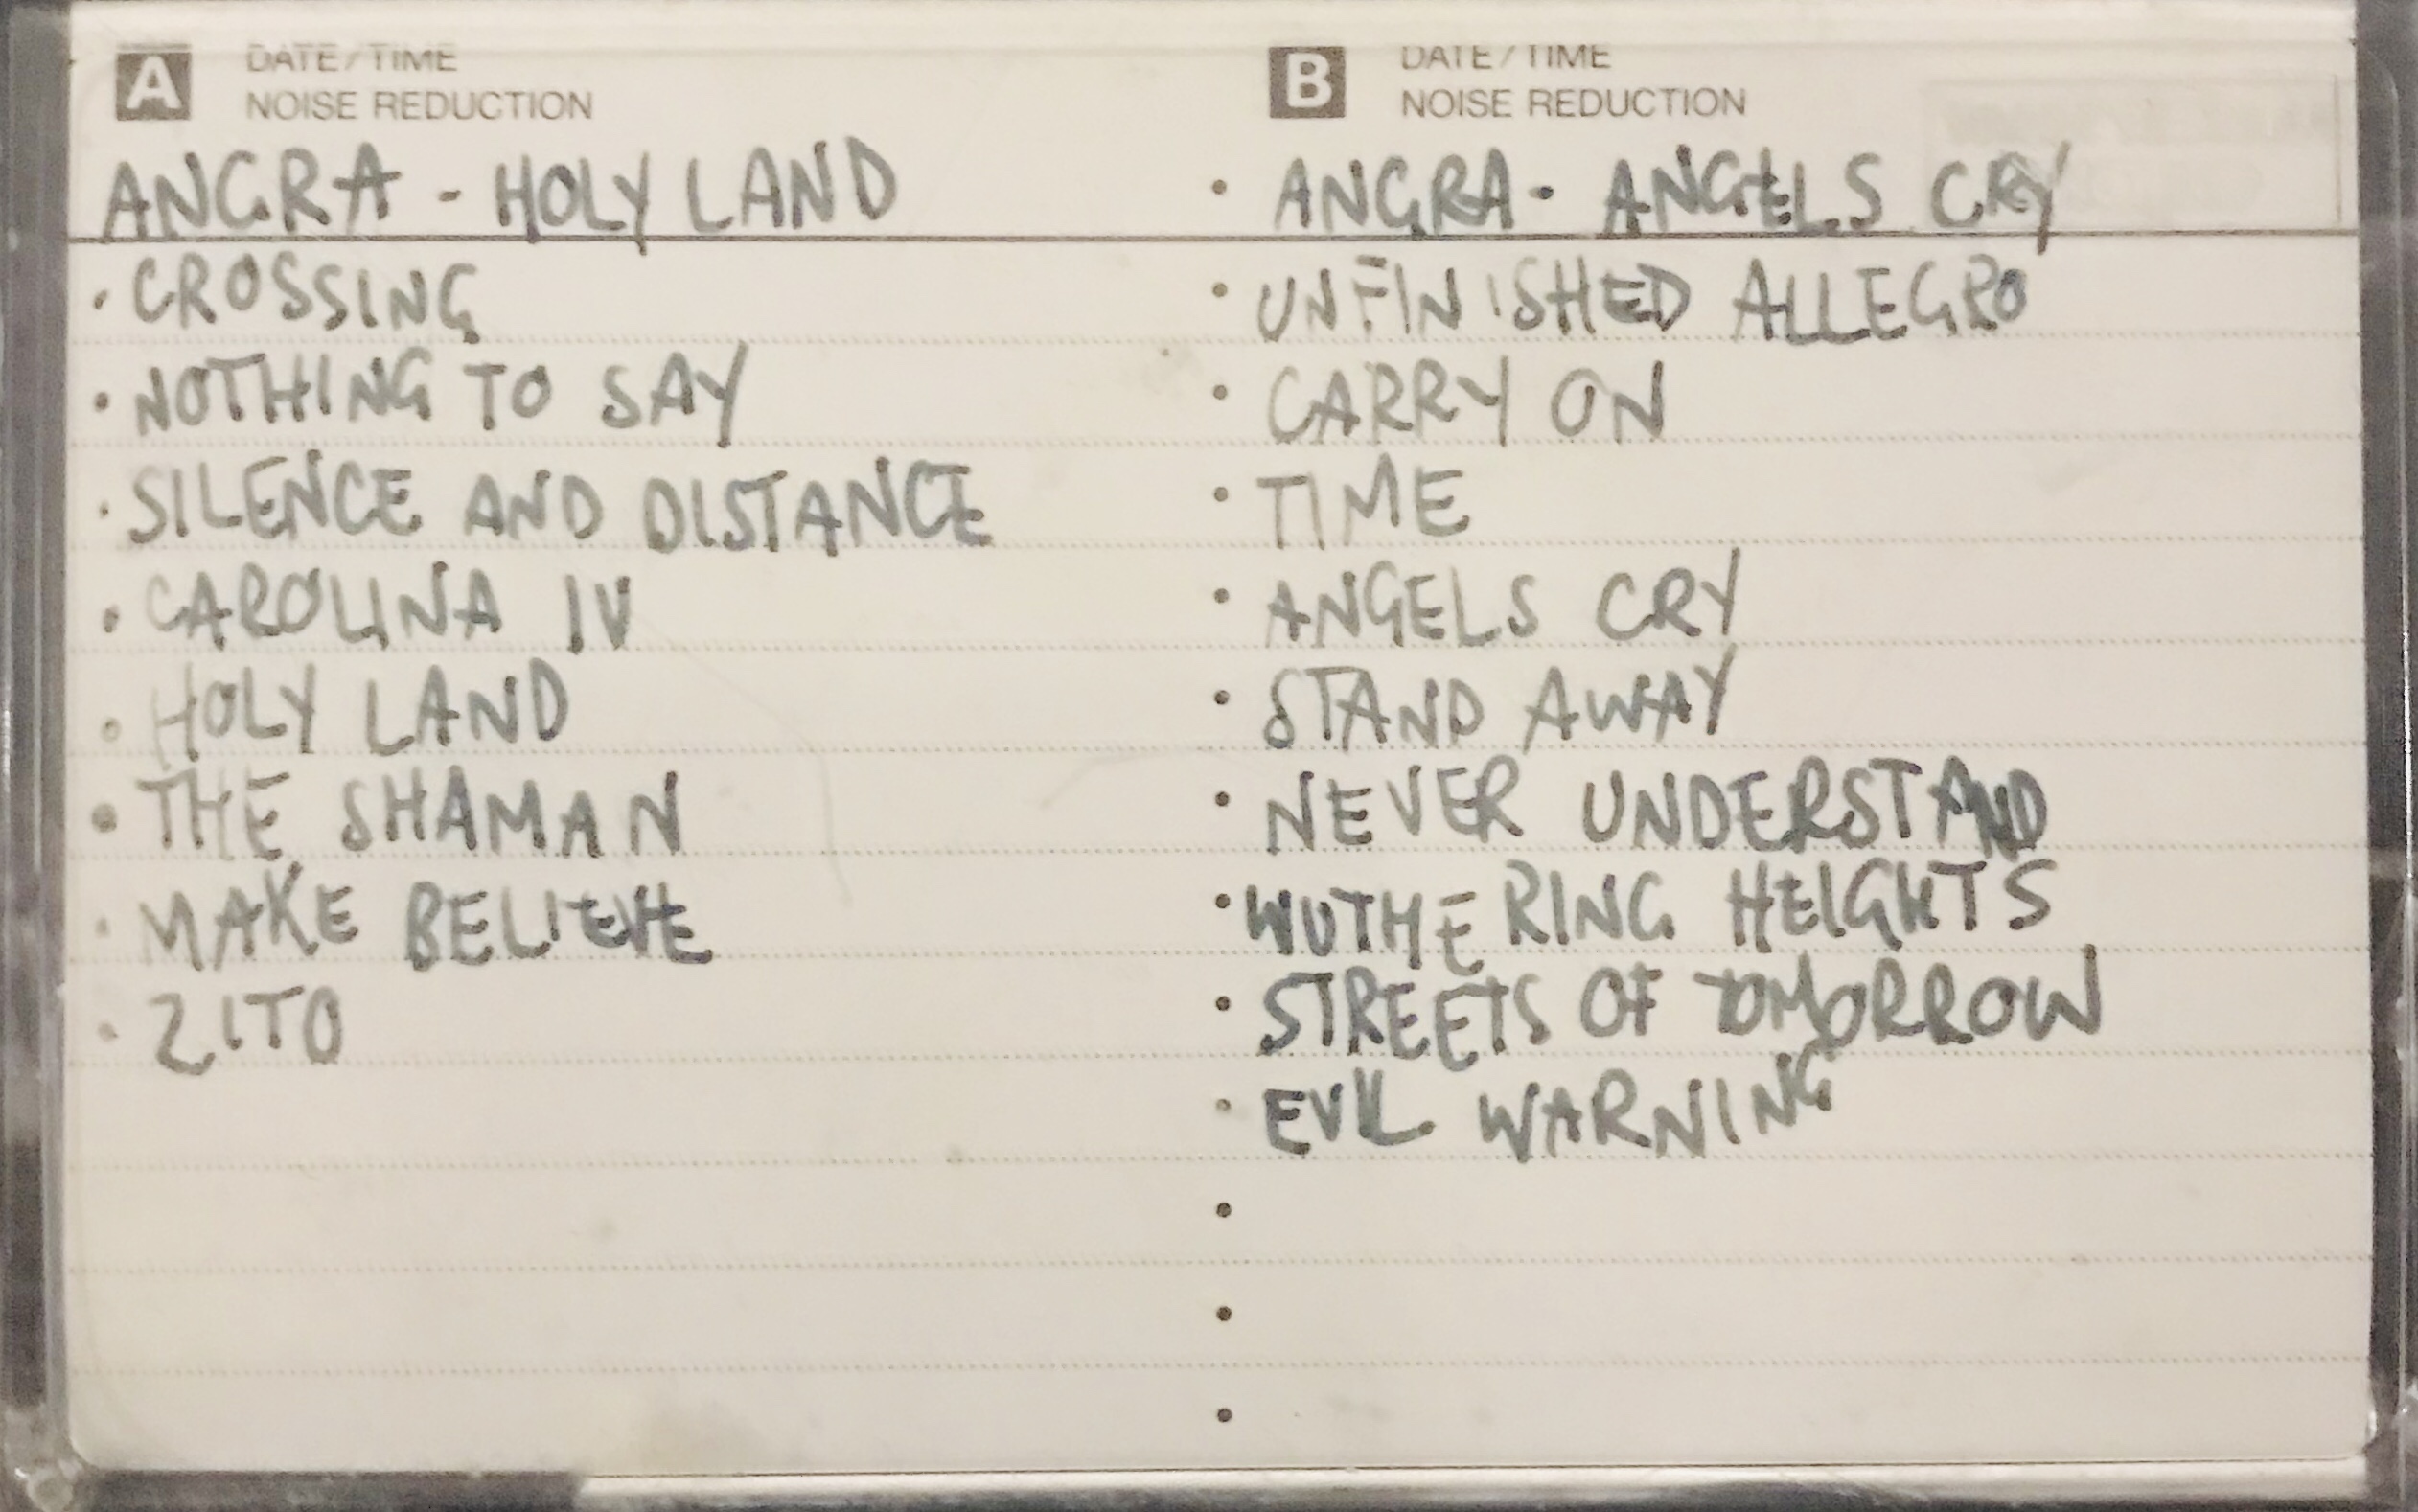 A DATE/TIME
NOISE REDUCTION
ANGRA - HOLY LAND
• CROSSING
• NOTHING TO SAY
• SILENCE AND DISTANCE
• CAROLINA IV
• HOLY LAND
• THE SHAMAN
• MAKE BELIEVE
• ZITO
B DATE/TIME
NOISE REDUCTION
• ANGRA - ANGELS CRY
• UNFINISHED ALLEGRO
• CARRY ON
• TIME
• ANGELS CRY
• STAND AWAY
• NEVER UNDERSTAND
• WUTHERING HEIGHTS
• STREETS OF TOMORROW
• EVIL WARNING